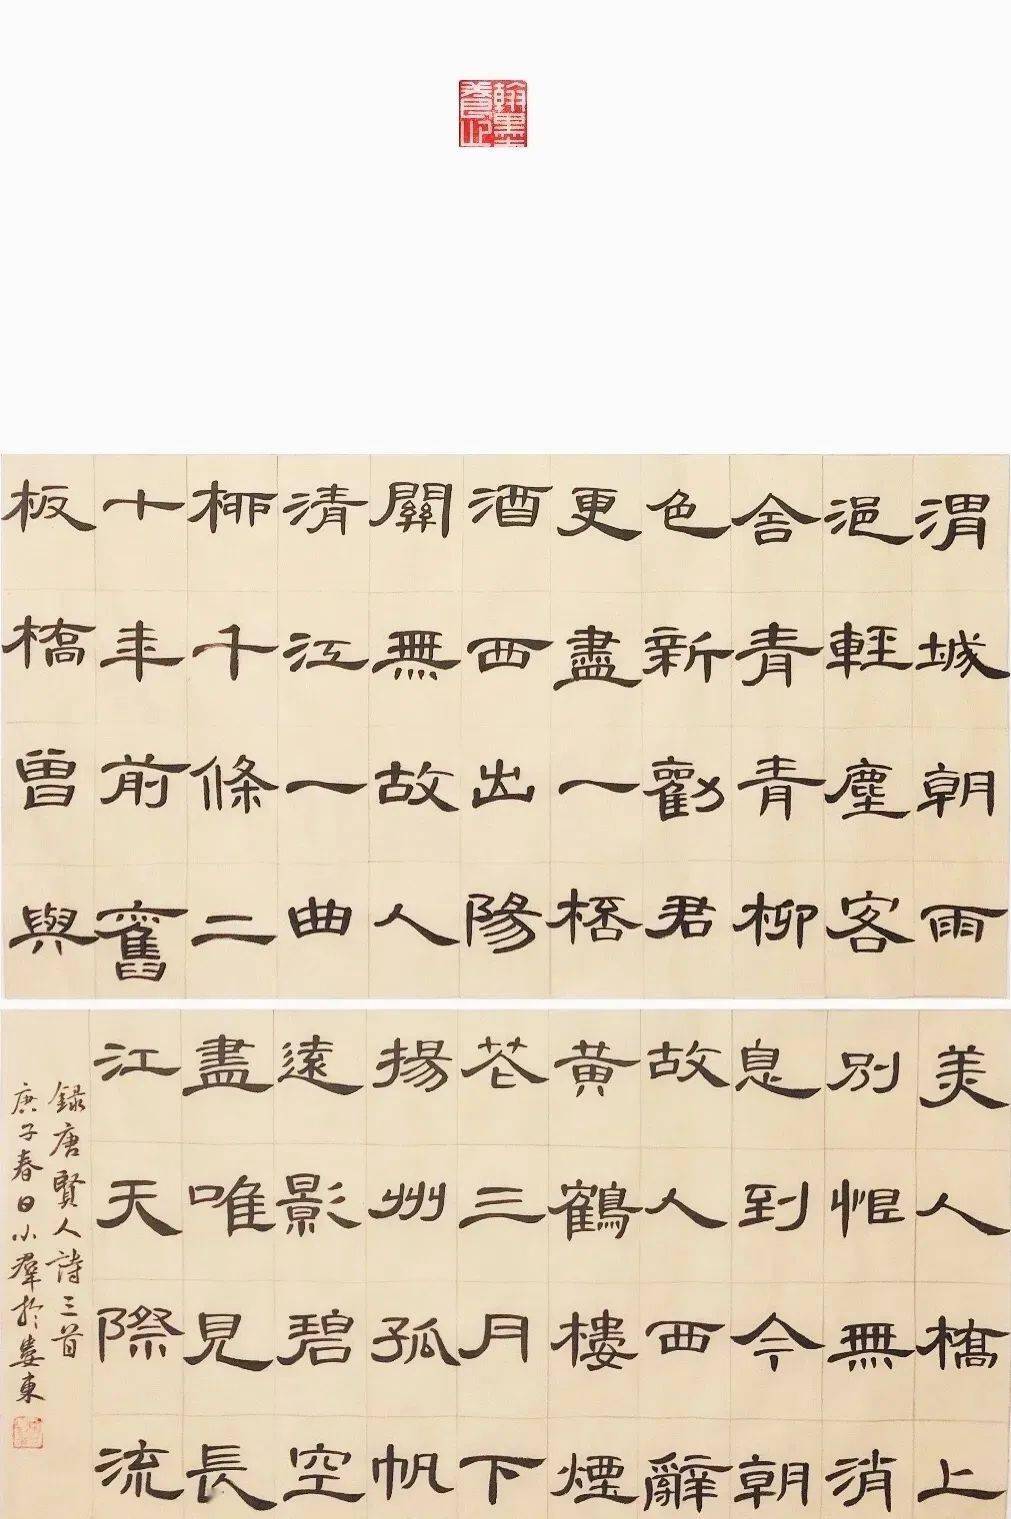 渭城朝雨
浥輕塵客
舍青青柳
色新勸君
更盡一桮
酒西出陽
關無故人
清江一曲
柳千條二
十年前舊
板橋曾與
美人橋上
別恨無消
息到今朝
故人西辭
黃鶴樓煙
花三月下
揚州孤帆
遠影碧空
盡唯見長
江天際流
錄唐賢人詩三首
庚子春日小羣於婁東